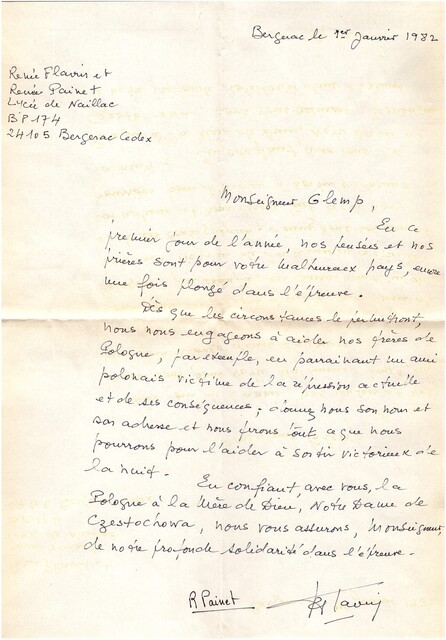 Bergerac le 1er Janvier 1982
Renée Flavris et
Renée Painet
Lycée de Naillac
BP 174
24105 Bergerac Cedex
Monseigneur Glemp,
En ce
premier jour de l'année, nos pensées et nos
prières sont pour votre malheureux pays, encore
une fois plongé dans l'épreuve.
Dès que les circonstances le permettront,
nous nous engageons à aider nos frères de
Pologne, par exemple, en parrainant un ami
polonais victime de la répression actuelle
et de ses conséquences ; donnez nous son nom et
son adresse et nous ferons tout ce que nous
pourrons pour l'aider à sortir victorieux de
la nuit.
En confiant, avec vous, la
Pologne à la Mère de Dieu, Notre Dame de
Czestochowa, nous vous assurons, Monseigneur,
de notre profonde solidarité dans l'épreuve.
R Painet